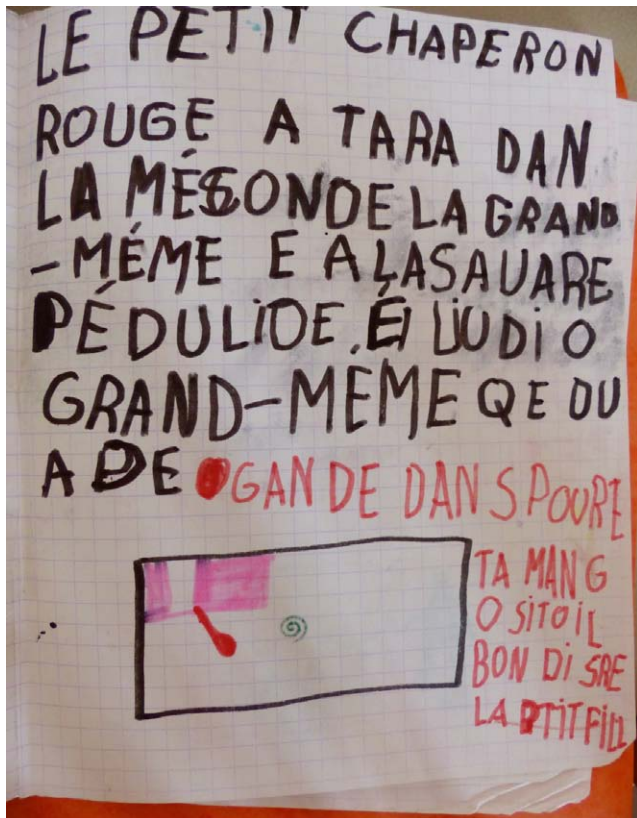 LE PETIT CHAPERON
ROUGE A TARA DAN
LA MÉSONDE LA GRAND
-MÉME E A LASAUARE
PÉDULIDE. ÉI LIUDI O
GRAND-MÉME QE DU
A DE GANDE DANS POURE
TA MANG
O SITO IL
BON DI SRE
LA PTITFILL